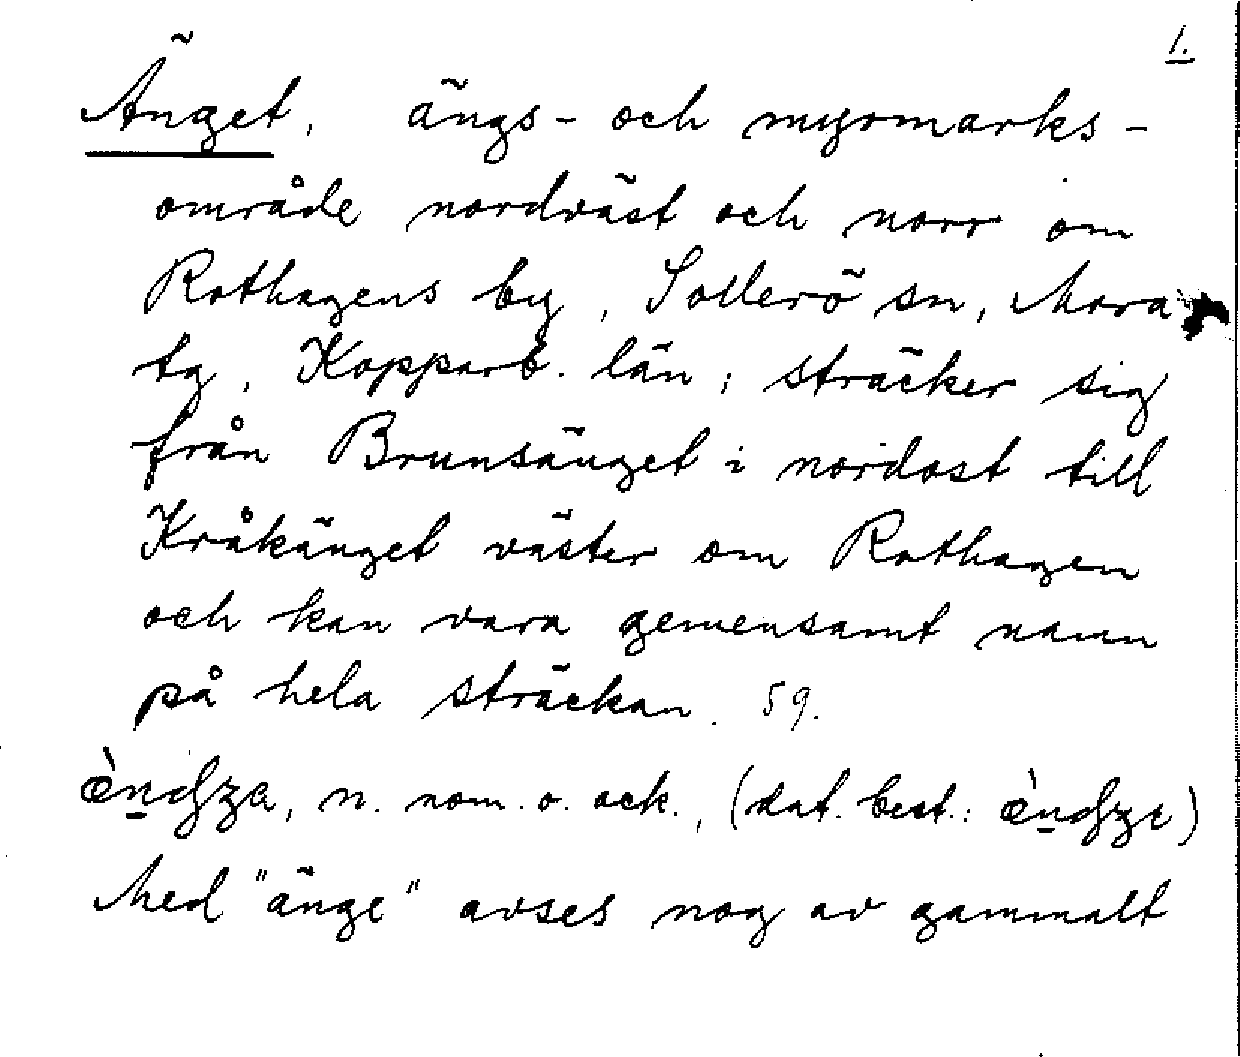 1.
Änget, ängs- och myrmarks-
område nordväst och norr om
Rothagens by, Sollerö sn, Mora
tg, Kopparb. län; sträcker sig
från Brunsänget i nordost till
Kråkänget väster om Rothagen
och kan vara gemensamt namn
på hela sträckan. 59.
n. nom. o. ack., (dat. best.:
Med "änge" avses nog av gammalt